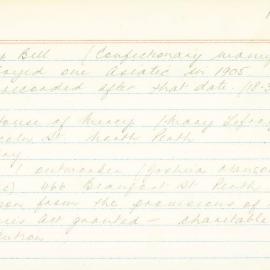 Bill (Confectionary manu
oyed one Asiatic in 1905
recorded after that date. (18.3
House of Mercy (Mary Lefroy
Lincoln St North Perth
ry
1 outworker (Joshua
466 Beaufort St Perth
ion from the provisions of
ries Act granted — charitable
tution